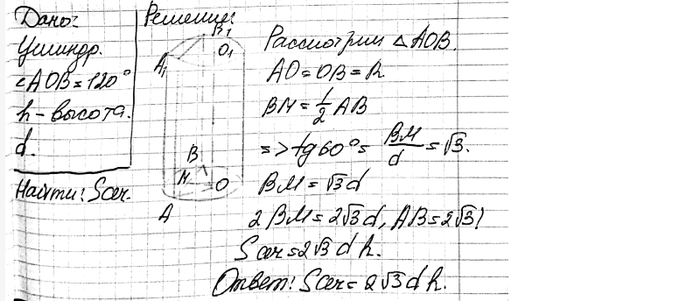 Дано:
Цилиндр.
∠AOB=120°
h-высота.
d.
Найти: Sсеч.
Решение:
B₁
O₁
A₁
B
M
O
A
Рассмотрим △AOB.
AO=OB=R
BM=1/2 AB
=> tg60°= BM/d =√3.
BM=√3d
2BM=2√3d, AB=2√3
Sсеч=2√3 d h.
Ответ: Sсеч=2√3 d h.